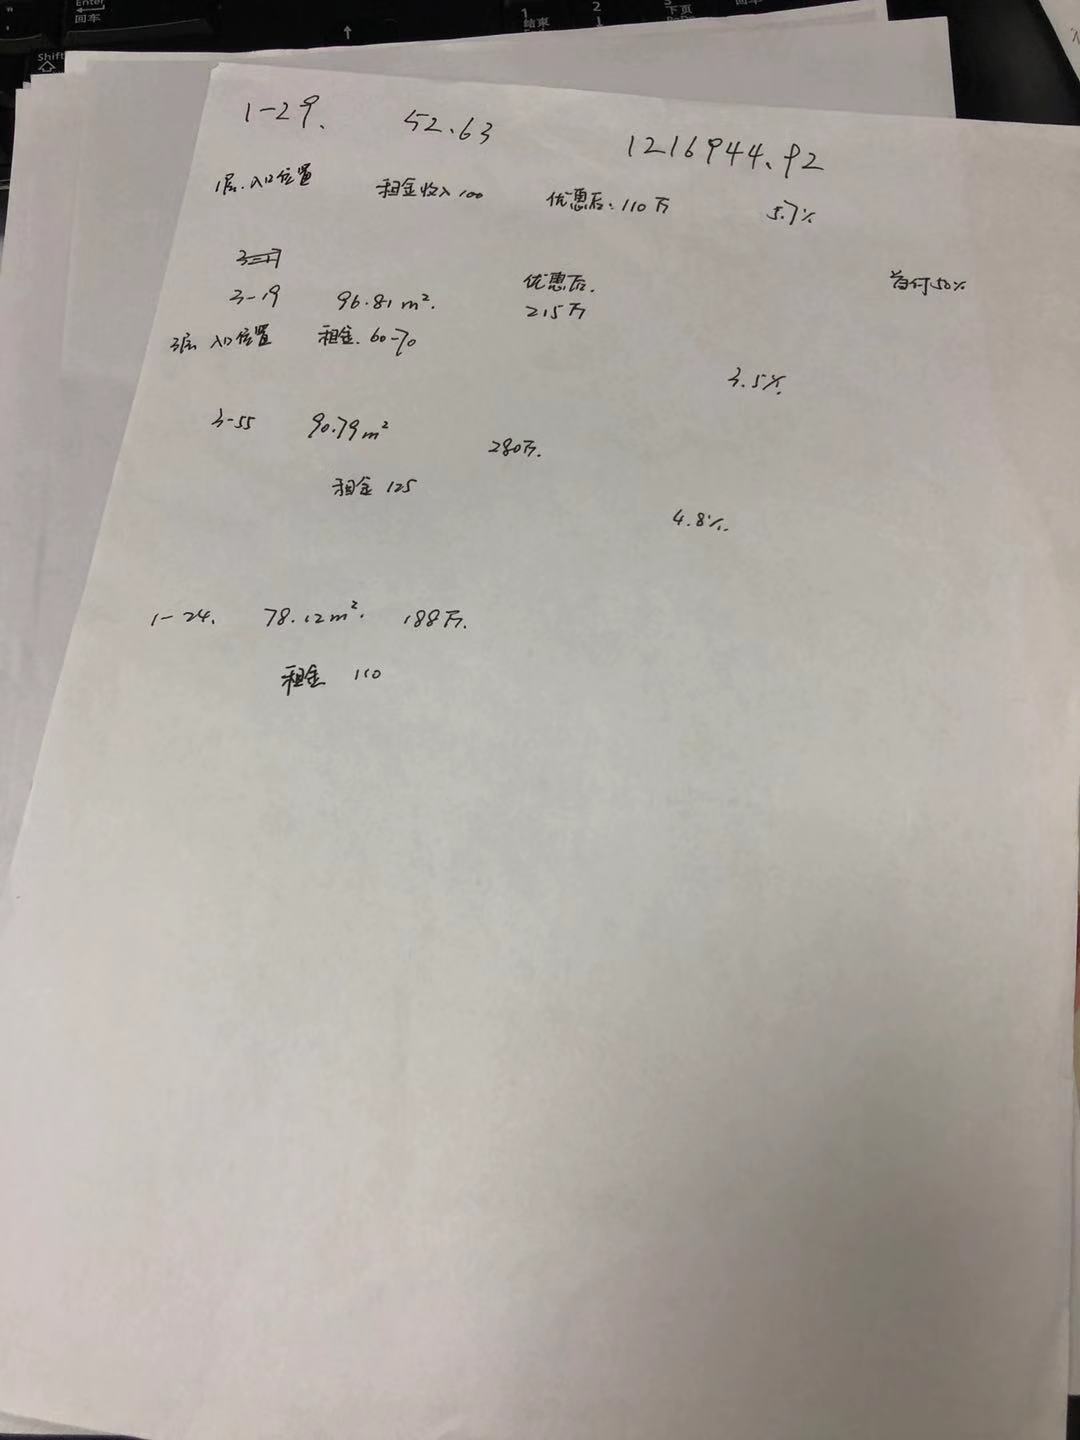 Enter
回车
Shift
1
结束
2
下页
回车
1-29. 52.63 1216944.92
1层.入口位置 租金收入100 优惠后:110万 5.7%
3-19 96.81m². 优惠后. 215万 首付50%
3层 入口位置 租金.60-70
3.5%
3-55 90.79m² 280万.
租金 125
4.8%.
1-24. 78.12m². 188万.
租金 110